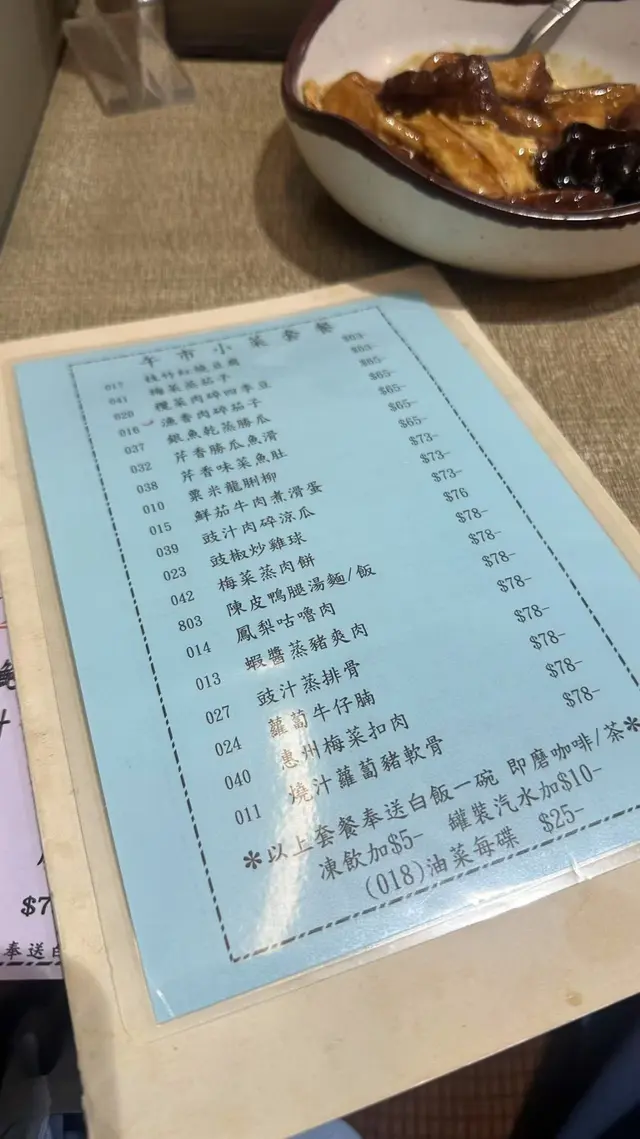 午市小菜套餐
017 枝竹紅燒豆腐 $63-
041 梅菜蒸茄子 $63-
020 欖菜肉碎四季豆 $65-
016 漁香肉碎茄子 $65-
037 銀魚乾蒸勝瓜 $65-
032 芹香勝瓜魚滑 $65-
038 芹香味菜魚肚 $65-
010 粟米龍脷柳 $73-
015 鮮茄牛肉煮滑蛋 $73-
039 豉汁肉碎涼瓜 $73-
023 豉椒炒雞球 $76
042 梅菜蒸肉餅 $78-
803 陳皮鴨腿湯麵/飯 $78-
014 鳳梨咕嚕肉 $78-
013 蝦醬蒸豬爽肉 $78-
027 豉汁蒸排骨 $78-
024 蘿蔔牛仔腩 $78-
040 惠州梅菜扣肉 $78-
011 燒汁蘿蔔豬軟骨 $78-
*以上套餐奉送白飯一碗 即磨咖啡/茶*
凍飲加$5- 罐裝汽水加$10-
(018)油菜每碟 $25-
$7
奉送白